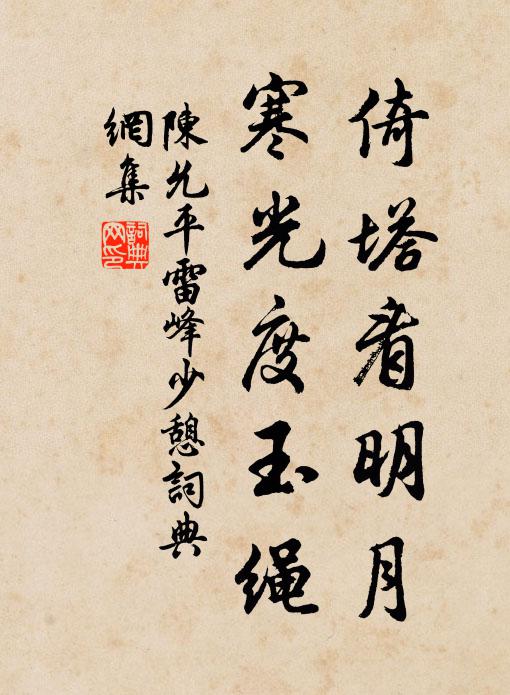 倚塔看明月
寒光度玉绳
陳允平雷峰少憩詞典
網集
詞典
网印